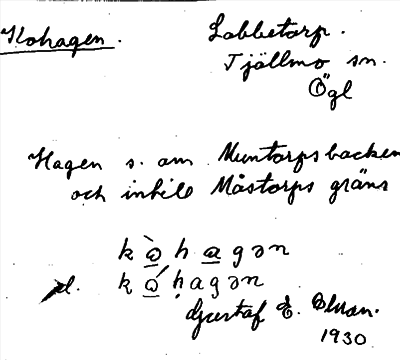 Kohagen.
Labbetorp.
Tjällmo sn.
Ögl
Hagen s. om Muntorpsbacken
och intill Måstorps gräns
k ò̲ h a̲ g ə n
d. k ó̲ ḥ a g ə n
Gustaf E. Olsson.
1930